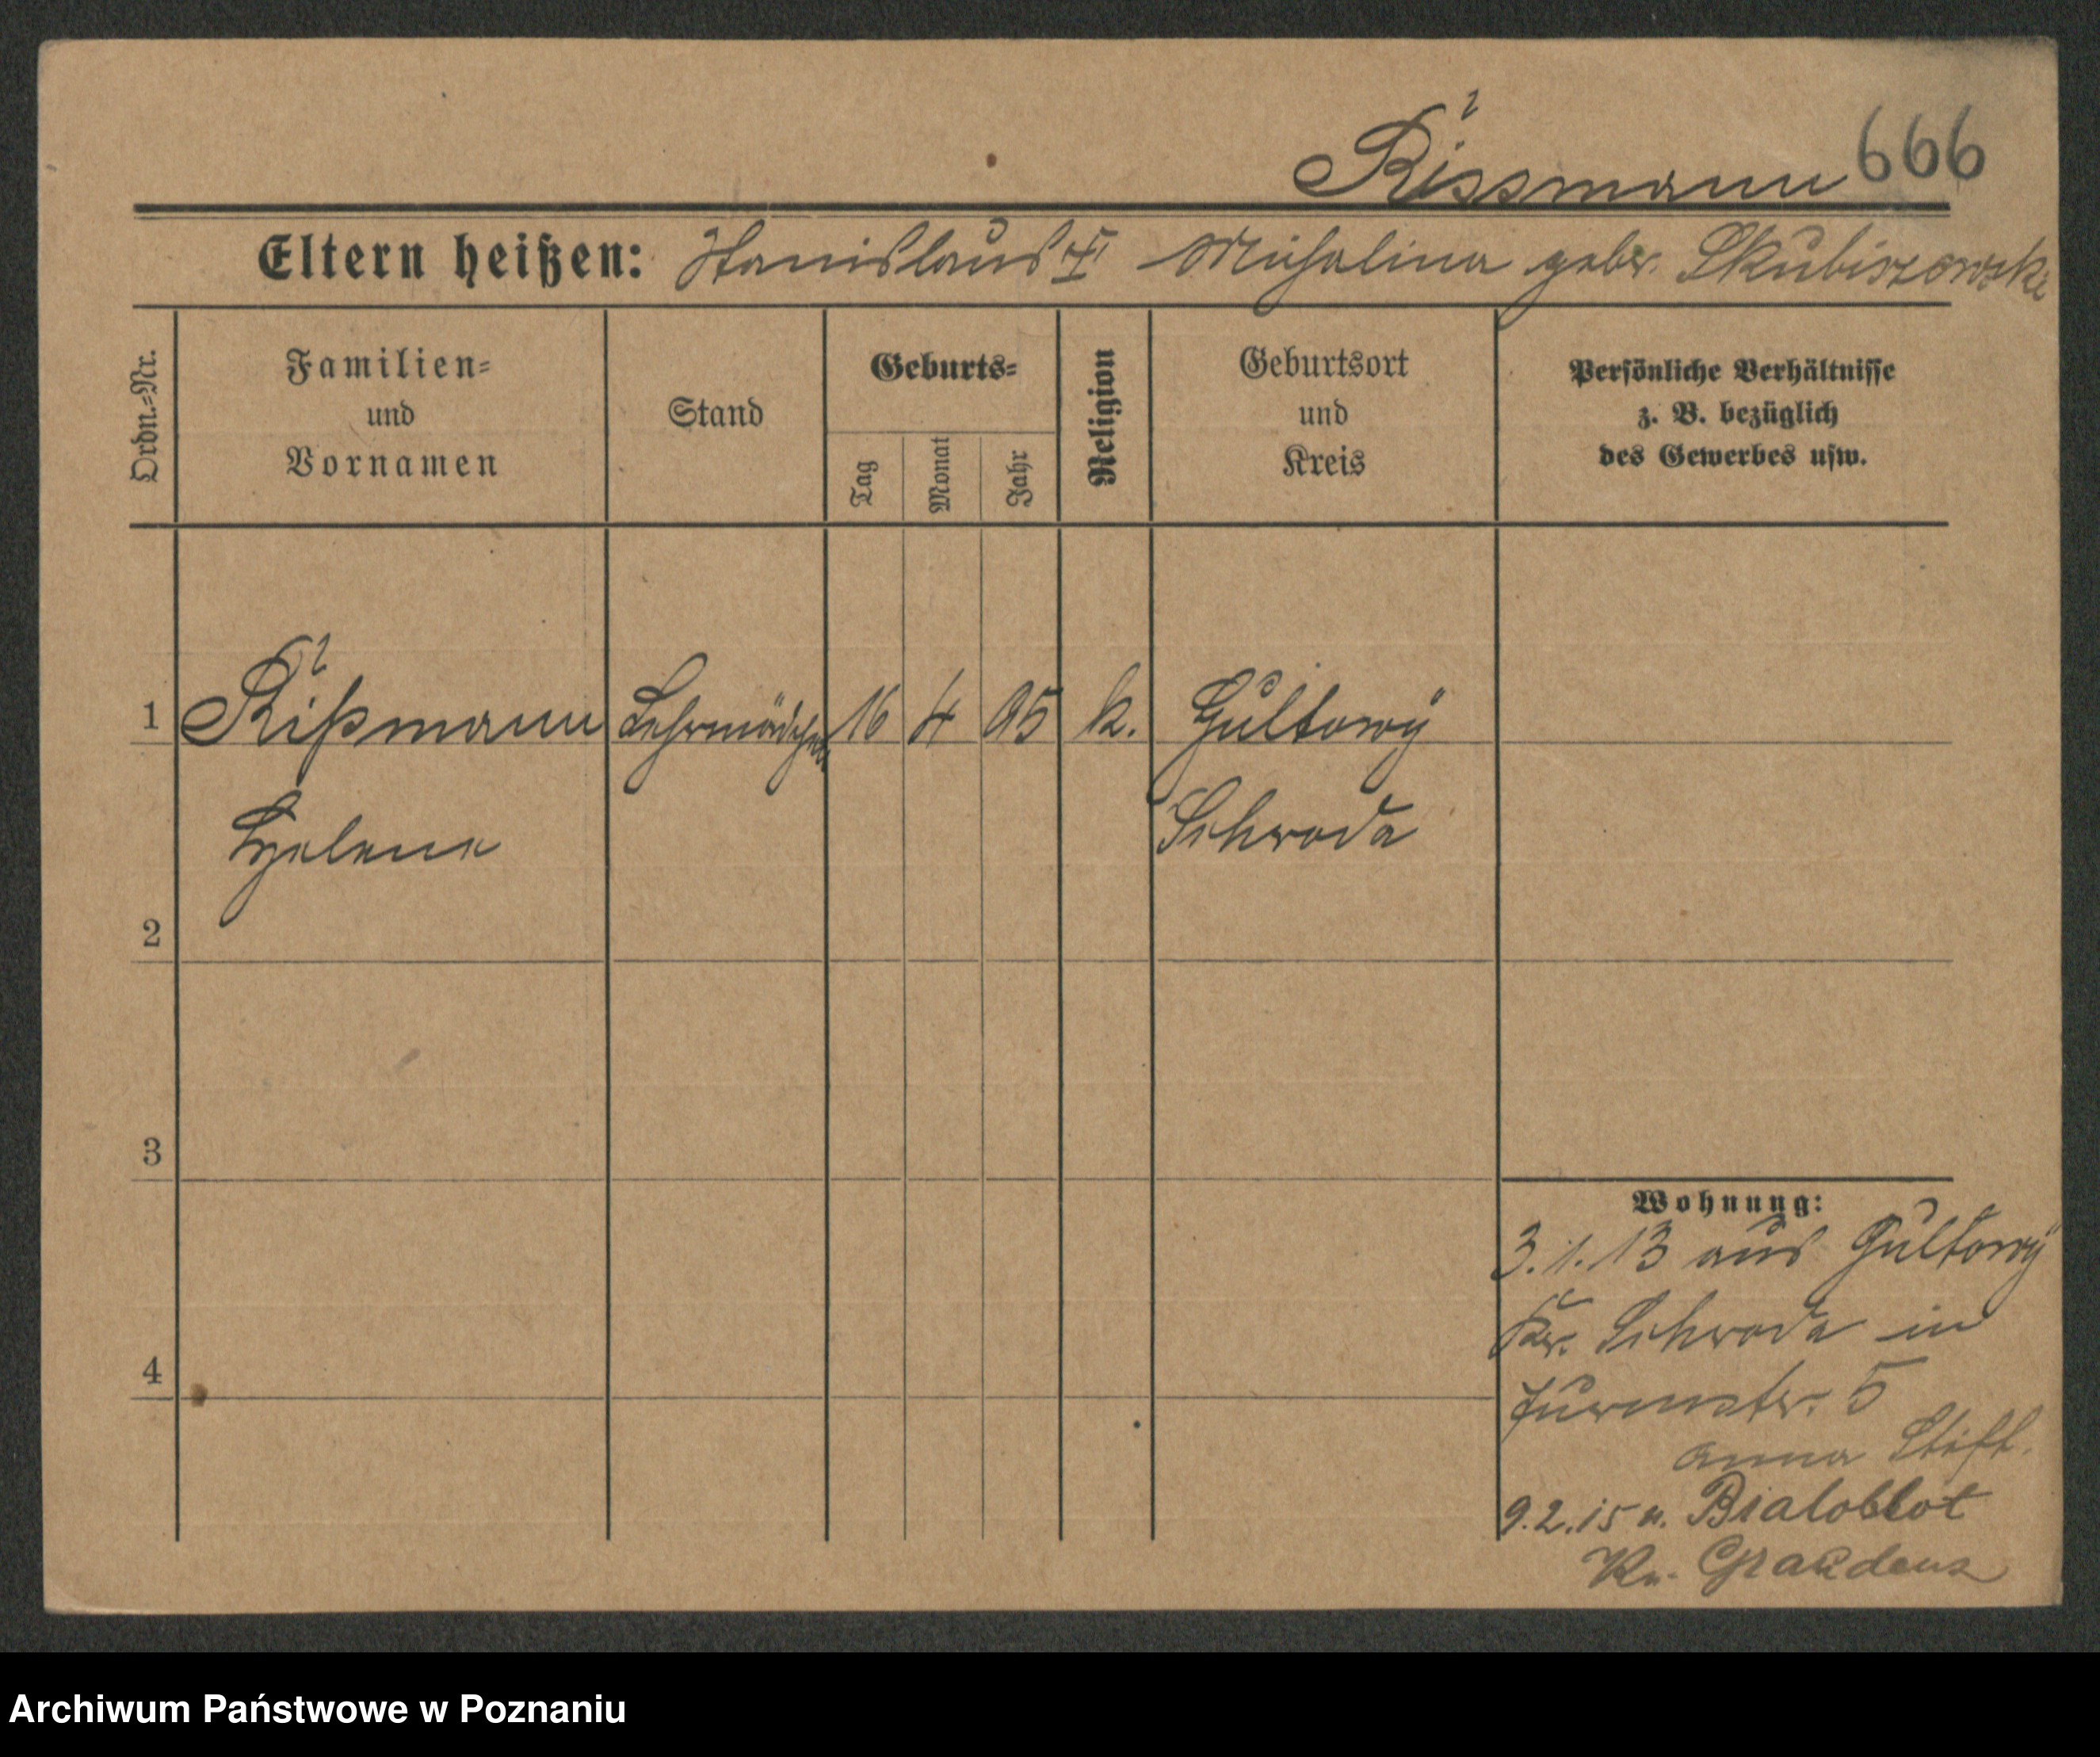 Rissmann 666
Eltern heißen: Stanislaus u. Michalina gebr. Skubiszewska
Ordn.-Nr.
Familien-
und
Vornamen
Stand
Geburts-
Tag
Monat
Jahr
Religion
Geburtsort
und
Kreis
Persönliche Verhältnisse
z. B. bezüglich
des Gewerbes usw.
1 Rißmann Lehrmädchen 16 4 95 k. Gultowy
Helena Schroda
2
3
4
Wohnung:
3.1.13 aus Gultowy
Kr. Schroda in
5
Anna Stift.
9.2.15 n. Bialoblot
Kr. Graudenz
Archiwum Państwowe w Poznaniu